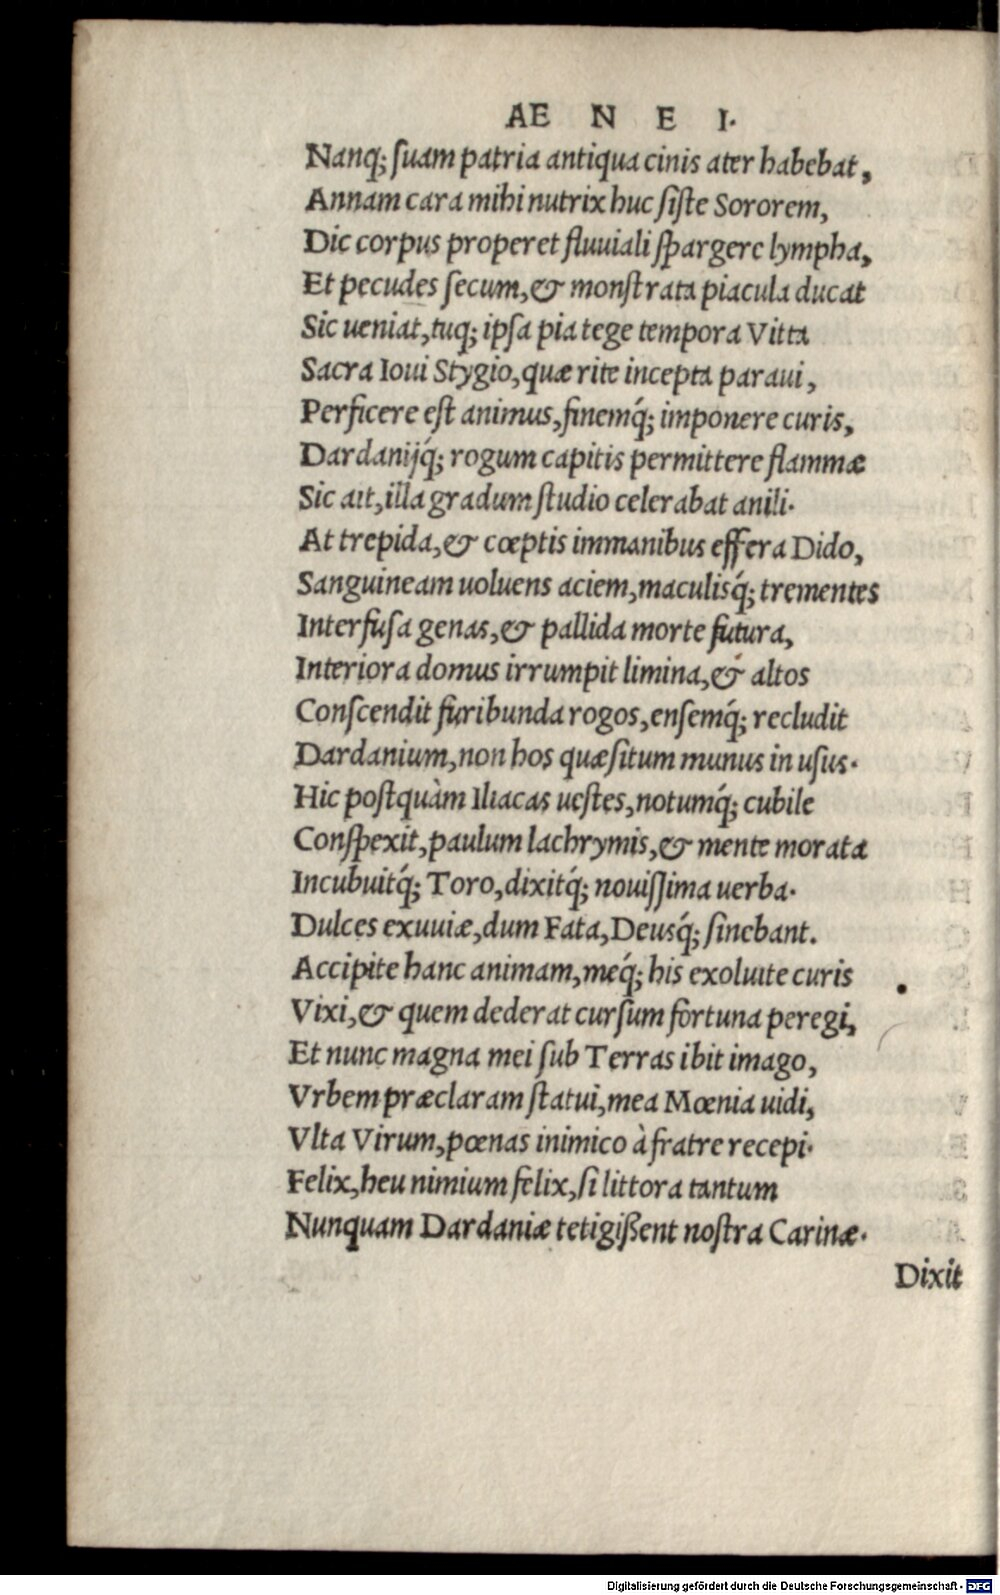 AE N E I.
Nanq; ſuam patria antiqua cinis ater habebat,
Annam cara mihi nutrix huc ſiſte Sororem,
Dic corpus properet fluuiali ſpargere lympha,
Et pecudes ſecum, & monſtrata piacula ducat
Sic ueniat, tuq; ipſa pia tege tempora Vitta
Sacra Ioui Stygio, quæ rite incepta paraui,
Perficere eſt animus, finemq́; imponere curis,
Dardanijq́; rogum capitis permittere flammæ
Sic ait, illa gradum ſtudio celerabat anili.
At trepida, & cœptis immanibus effera Dido,
Sanguineam uoluens aciem, maculisq́; trementes
Interfuſa genas, & pallida morte futura,
Interiora domus irrumpit limina, & altos
Conſcendit furibunda rogos, enſemq́; recludit
Dardanium, non hos quæſitum munus in uſus.
Hic poſtquàm Iliacas ueſtes, notumq́; cubile
Conſpexit, paulum lachrymis, & mente morata
Incubuitq́; Toro, dixitq́; nouiſſima uerba.
Dulces exuuiæ, dum Fata, Deusq́; ſinebant.
Accipite hanc animam, meq́; his exoluite curis
Vixi, & quem dederat curſum fortuna peregi,
Et nunc magna mei ſub Terras ibit imago,
Vrbem præclaram ſtatui, mea Mœnia uidi,
Vlta Virum, pœnas inimico à fratre recepi.
Felix, heu nimium felix, ſi littora tantum
Nunquam Dardaniæ tetigißent noſtra Carinæ.
Dixit
Digitalisierung gefördert durch die Deutsche Forschungsgemeinschaft - DFG